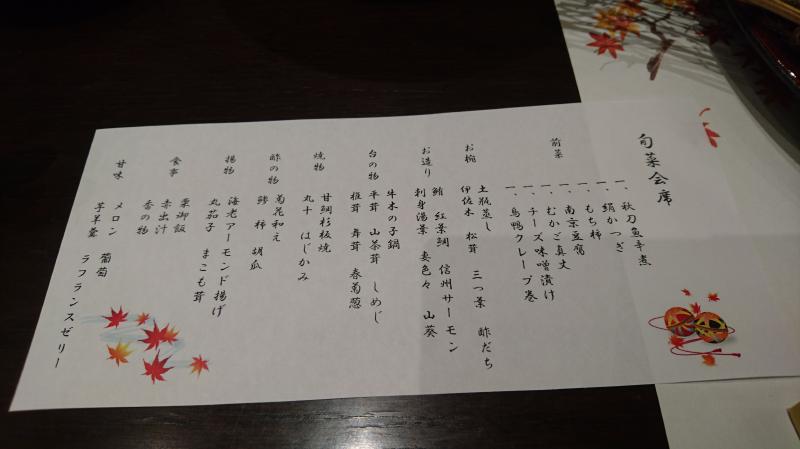 旬菜会席
前菜
一、秋刀魚辛煮
一、絹かつぎ
一、もち柿
一、南京豆腐
一、むかご真丈
一、チーズ味噌漬け
一、鳥鴨クレープ巻
お椀
土瓶蒸し
伊佐木 松茸 三つ葉 酢だち
お造り
鮪 紅葉鯛 信州サーモン
刺身湯葉 妻色々 山葵
台の物
牛木の子鍋
平茸 山茶茸 しめじ
椎茸 舞茸 春菊葱
焼物
甘鯛杉板焼
丸十 はじかみ
酢の物
菊花和え
鯵 柿 胡瓜
揚物
海老アーモンド揚げ
丸茄子 まこも茸
食事
栗御飯
赤出汁
香の物
甘味
メロン 葡萄
芋羊羹 ラフランスゼリー